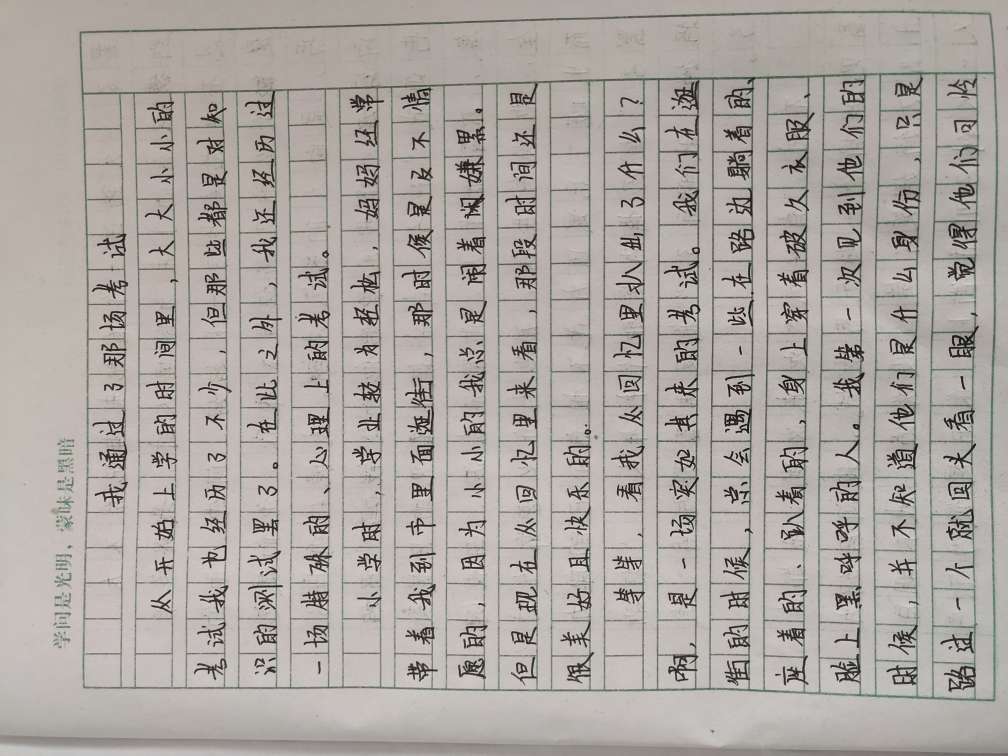 学问是光明，蒙昧是黑暗
我通过了那场考试
从开始上学的时间里，大大小小的
考试我也经历了不少，但那些都是对知
识的测试罢了。在此之外，我还经历过
一场特殊的、心理上的考试。
小学时，学业较为轻松，妈妈经常
带着我到市里面逛街，那时候是及不情
愿的，因为小小的我总是闹着闲嫌累。
但是现在从回忆里来看，那段时间还是
很美好且快乐的。
等等，看我从回忆里扒出了什么？
啊，是一场突如其来的考试。我们在逛
街的时候，总会遇到一些在路边躺着的、
座着的、趴着的，身上穿着破久衣服、
脸上黑呼呼的人。我第一次见到他们的
时候，并不知道他们是什么身份，只是
路过一个就回头看一眼，觉得他们可怜